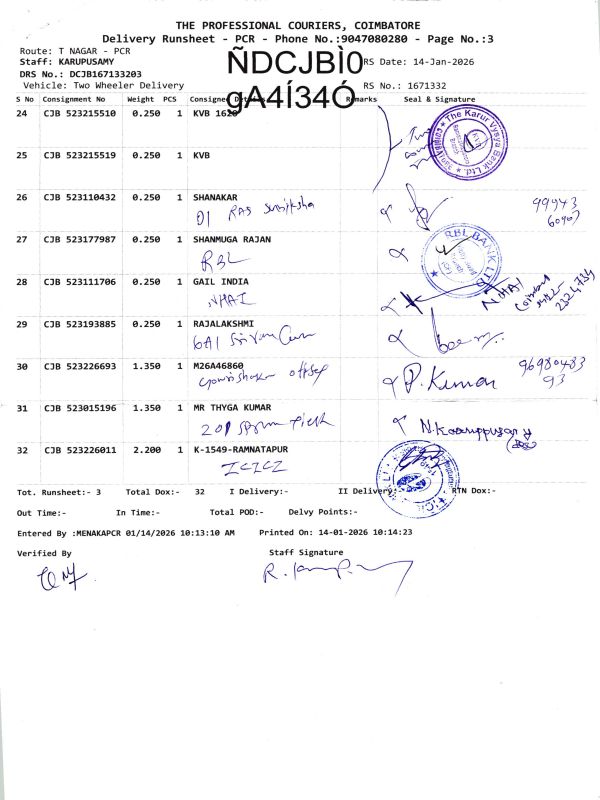 THE PROFESSIONAL COURIERS, COIMBATORE
Delivery Runsheet - PCR - Phone No.:9047080280 - Page No.:3
Route: T NAGAR - PCR
Staff: KARUPUSAMY
ÑDCJBÌ0
RS Date: 14-Jan-2026
DRS No.: DCJB167133203
Vehicle: Two Wheeler Delivery
gA4Í34Ó
RS No.: 1671332
S No Consignment No Weight PCS Consignee Details Remarks Seal & Signature
24 CJB 523215510 0.250 1 KVB 1620
The Karur Vysya Bank Ltd.
25 CJB 523215519 0.250 1 KVB
26 CJB 523110432 0.250 1 SHANAKAR
99943
60907
27 CJB 523177987 0.250 1 SHANMUGA RAJAN
RBL
RBL BANK LTD
28 CJB 523111706 0.250 1 GAIL INDIA
NHAI
NHAI
29 CJB 523193885 0.250 1 RAJALAKSHMI
30 CJB 523226693 1.350 1 M26A46860
P. Kumar
96980483
93
31 CJB 523015196 1.350 1 MR THYGA KUMAR
32 CJB 523226011 2.200 1 K-1549-RAMNATAPUR
ICICI
Tot. Runsheet:- 3 Total Dox:- 32 I Delivery:- II Delivery:- RTN Dox:-
Out Time:- In Time:- Total POD:- Delvy Points:-
Entered By :MENAKAPCR 01/14/2026 10:13:10 AM Printed On: 14-01-2026 10:14:23
Verified By Staff Signature